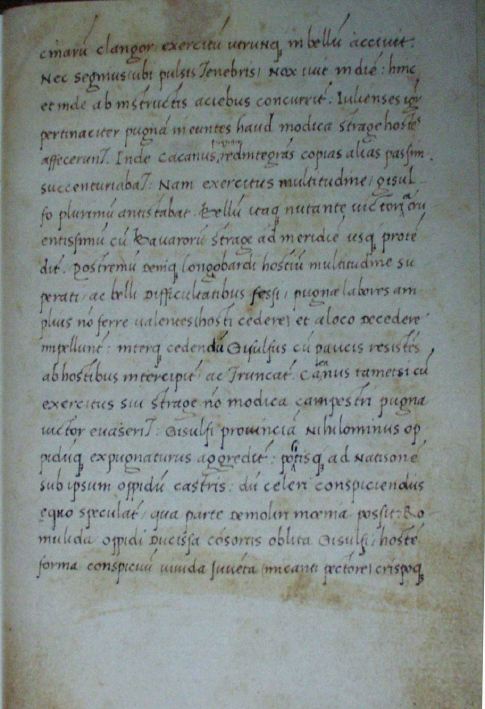 cinarū clangor: exercitū utrunq; in bellū accivit.
Nec segnius, ubi pulsis tenebris, nox ivit in diē: hinc
et inde ab instructis aciebus concurrit. Iulienses
pertinaciter pugnā ineuntes haud modica strage hostes
affecerunt. Inde Cacanus, redintegrās copias alias passim
succenturiabat: Nam exercitus multitudine, gisul-
fo plurimū antistabat. Bellū itaq; nutante victoria
entissimū cū Bavarorū strage ad meridiē usq; prote
dit. Postremū deniq; longobardi hostiū multitudine su
perati, ac belli difficultatibus fessi, pugnae labores am
plius nō ferre valentes, hosti cedere, et a loco decedere
impellunt: interq; cedendū Gisulfus cū paucis resistēs
ab hostibus intercipit ac truncat. Canus tametsi cū
exercitus sui strage nō modica campestri pugna
victor evaserit: Gisulfi provinciā nihilominus op
pidūq; expugnaturus aggredit: potisq; ad Natisonē
sub ipsum oppidū castris: dū celeri conspiciendus
equo speculat, qua parte demoliri moenia possit: Ro-
mulida oppidi ducissa cōsortis oblita Gisulfi, hostē
forma conspicuū vivida iuvēta, micanti pectore, crispoq;